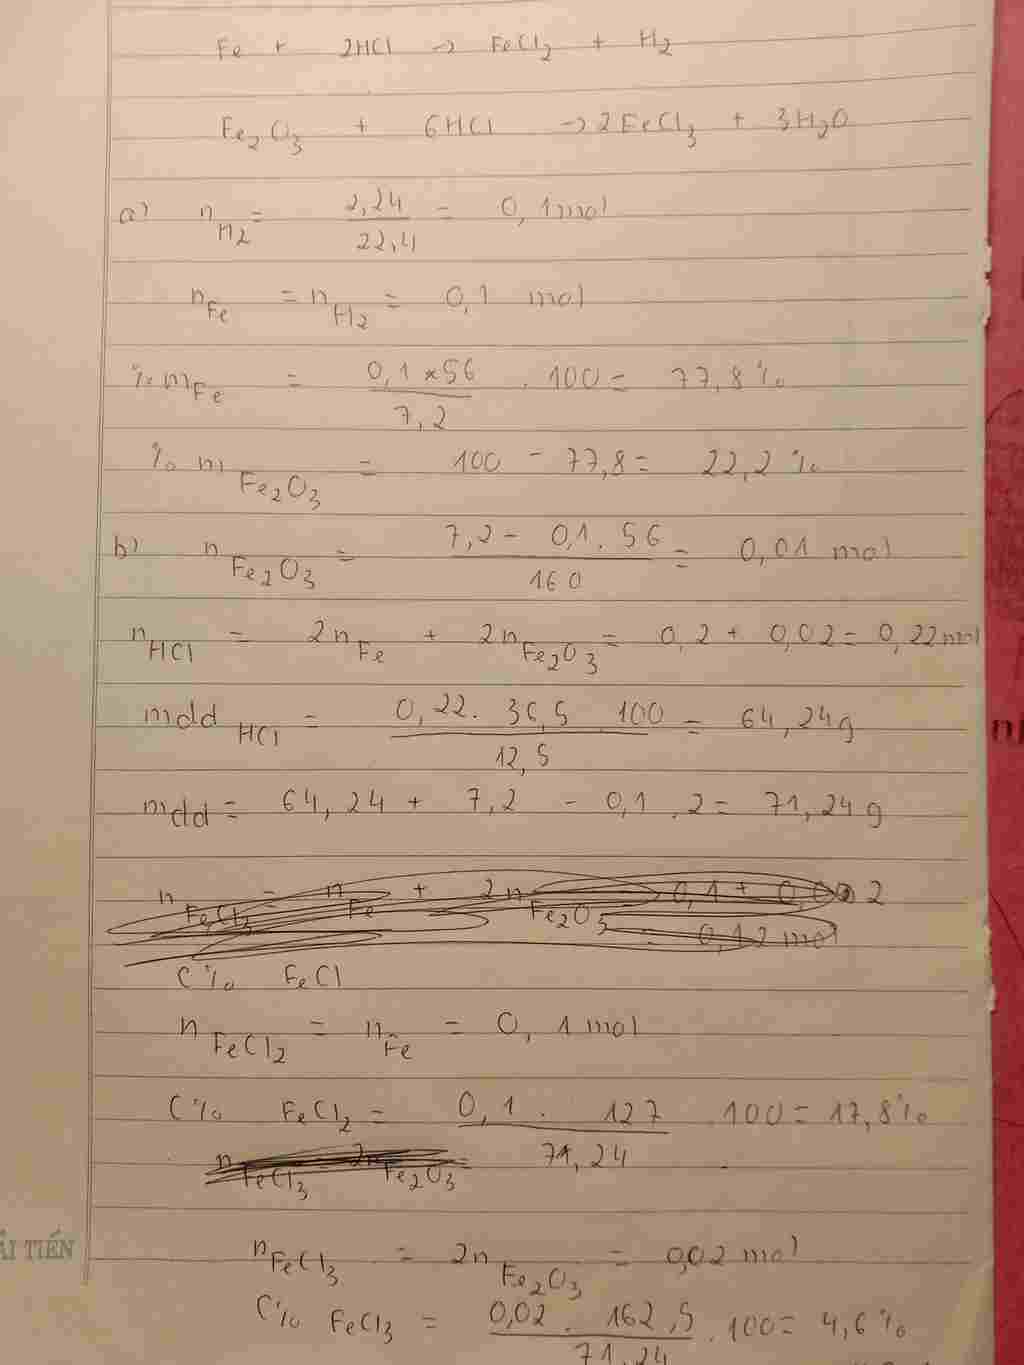 Fe + 2HCl → FeCl₂ + H₂
Fe₂O₃ + 6HCl → 2FeCl₃ + 3H₂O
a) n H₂ = 2,24 / 22,4 = 0,1 mol
n Fe = n H₂ = 0,1 mol
% m Fe = 0,1 × 56 / 7,2 . 100 = 77,8 %
% m Fe₂O₃ = 100 - 77,8 = 22,2 %
b) n Fe₂O₃ = 7,2 - 0,1 . 56 / 160 = 0,01 mol
n HCl = 2n Fe + 2n Fe₂O₃ = 0,2 + 0,02 = 0,22 mol
mdd HCl = 0,22 . 36,5 . 100 / 12,5 = 64,24g
mdd = 64,24 + 7,2 - 0,1 . 2 = 71,24g
n FeCl₃ = n Fe + 2n Fe₂O₃ = 0,1 + 0,02
= 0,12 mol
C% FeCl
n FeCl₂ = n Fe = 0,1 mol
C% FeCl₂ = 0,1 . 127 / 71,24 . 100 = 17,8%
n FeCl₃ = 2n Fe₂O₃ =
ẢI TIẾN
n FeCl₃ = 2n Fe₂O₃ = 0,02 mol
C% FeCl₃ = 0,02 . 162,5 / 71,24 . 100 = 4,6%